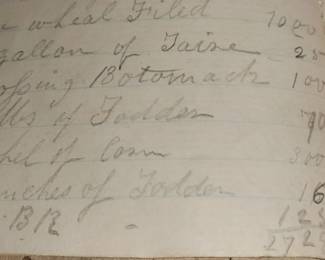 wheal Filed 1000
gallon of Taire 25
ossing Botomack 100
lbs of Fodder 70
hel of Corn 300
nches of Fodder 16
BR - 123
272